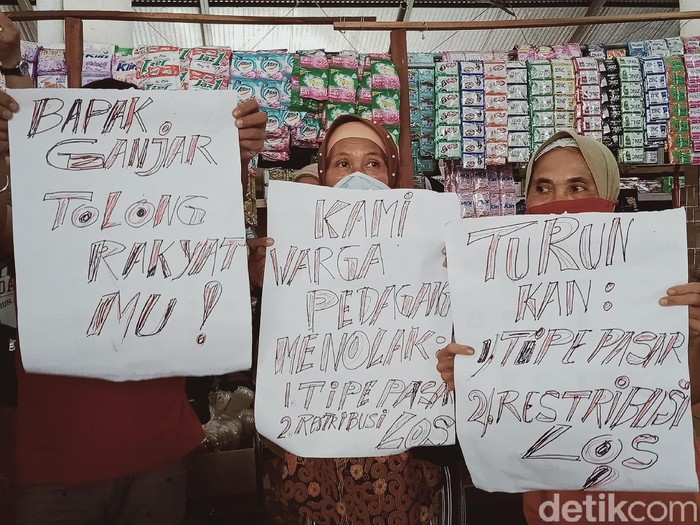 BAPAK
GANJAR
TOLONG
RAKYAT
MU!
KAMI
WARGA
PEDAGANG
MENOLAK:
1. TIPE PASAR
2. RESTRIBUSI
LOS
TURUN
KAN:
1). TIPE PASAR
2). RESTRIBUSI
LOS
detikcom